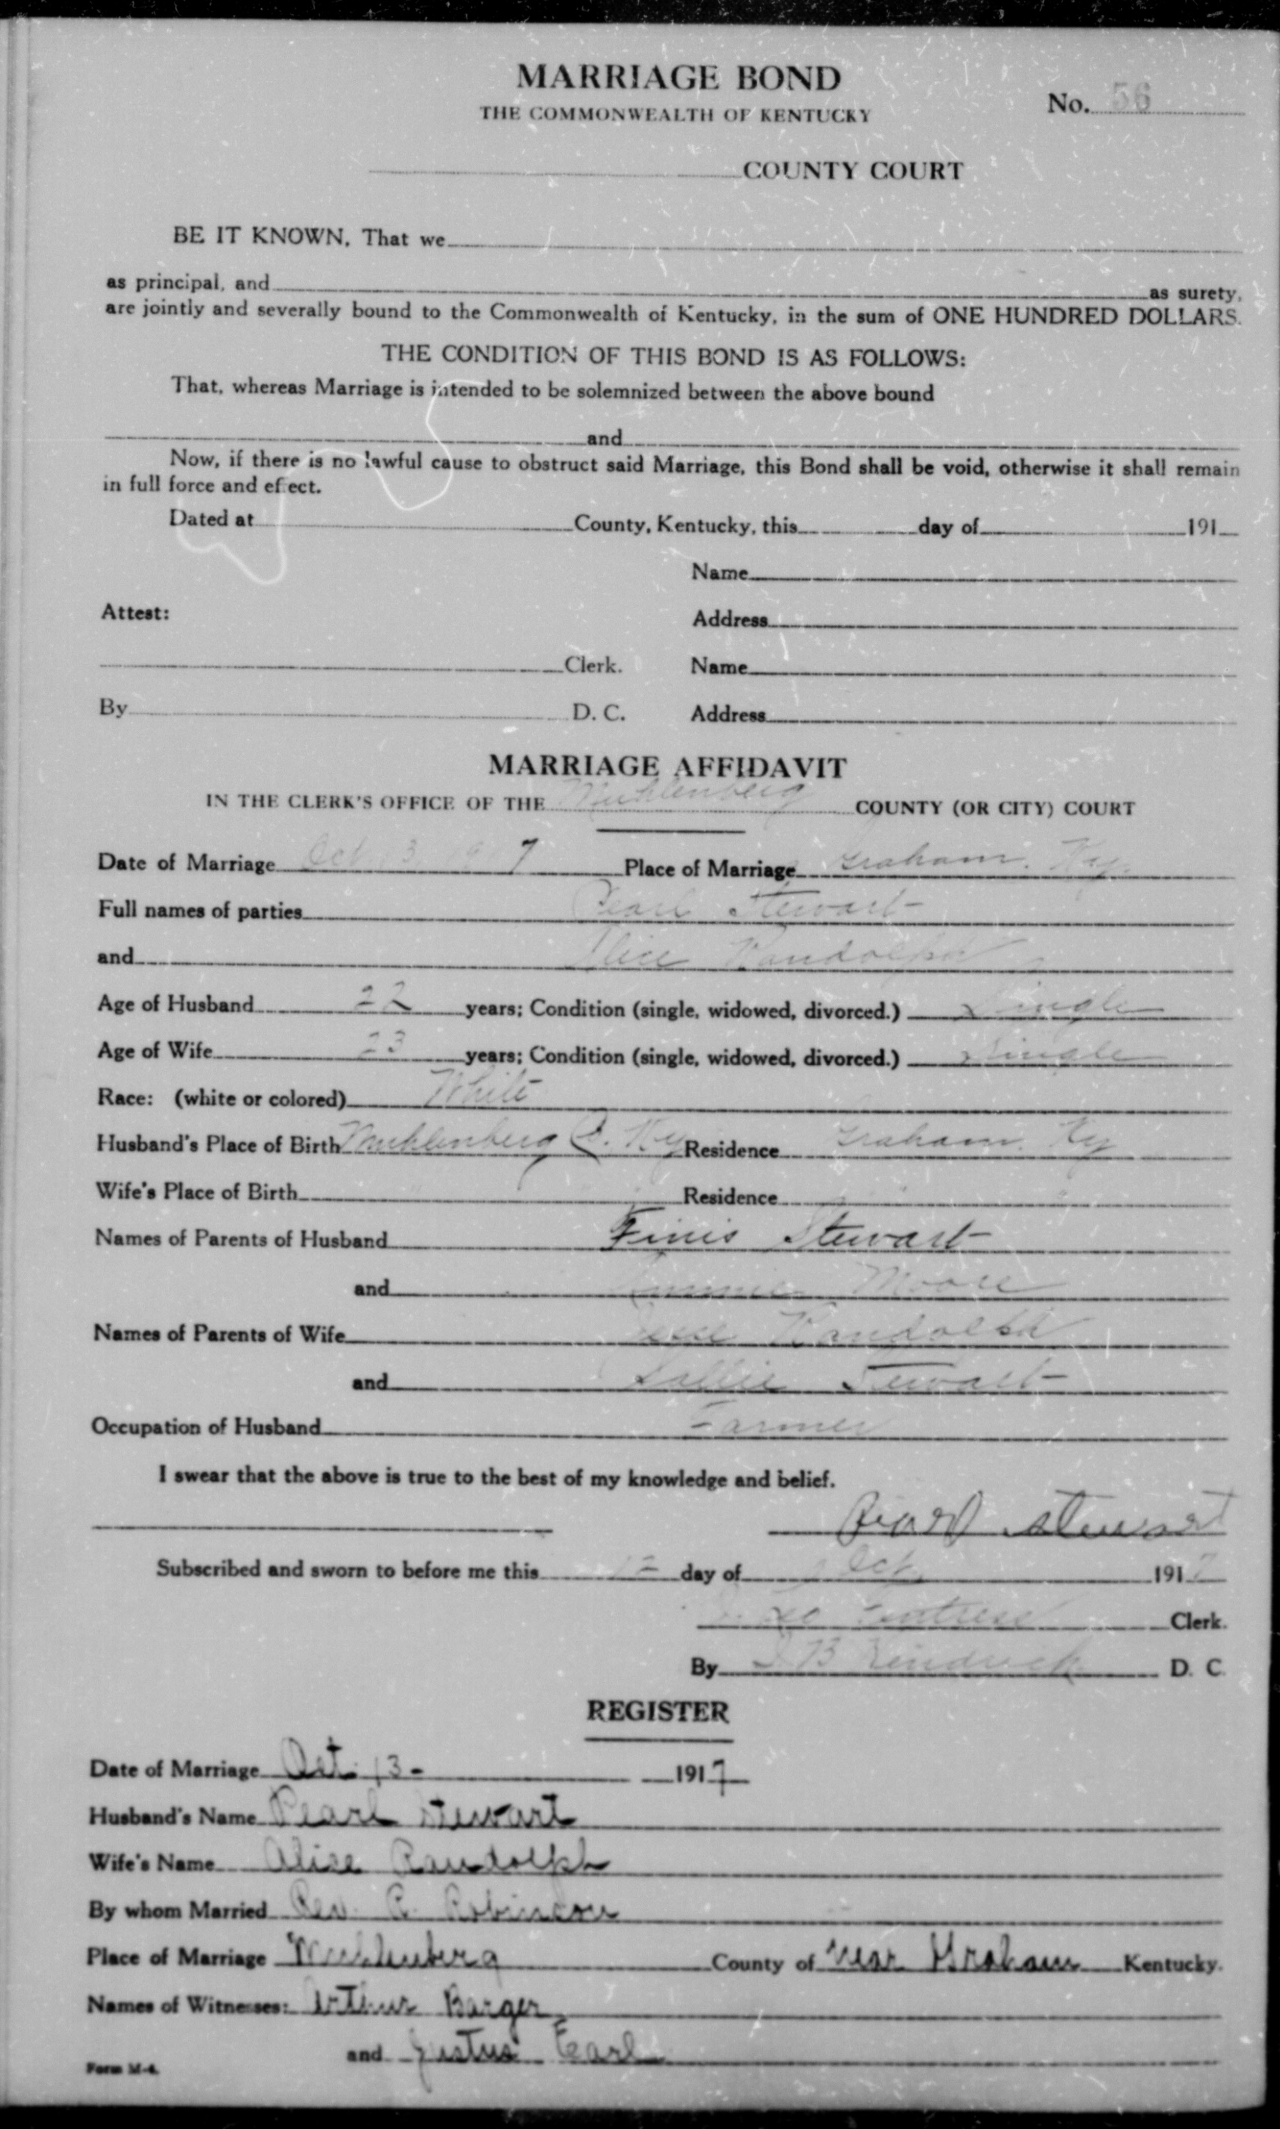 MARRIAGE BOND
THE COMMONWEALTH OF KENTUCKY
No. 56
COUNTY COURT
BE IT KNOWN, That we
as principal, and as surety,
are jointly and severally bound to the Commonwealth of Kentucky, in the sum of ONE HUNDRED DOLLARS.
THE CONDITION OF THIS BOND IS AS FOLLOWS:
That, whereas Marriage is intended to be solemnized between the above bound
and
Now, if there is no lawful cause to obstruct said Marriage, this Bond shall be void, otherwise it shall remain
in full force and effect.
Dated at County, Kentucky, this day of 191
Name
Attest: Address
Clerk. Name
By D. C. Address
MARRIAGE AFFIDAVIT
IN THE CLERK'S OFFICE OF THE Muhlenberg COUNTY (OR CITY) COURT
Date of Marriage Oct 13 1917 Place of Marriage Graham, Ky.
Full names of parties Pearl Stewart
and Alice Randolph
Age of Husband 22 years; Condition (single, widowed, divorced.) Single
Age of Wife 23 years; Condition (single, widowed, divorced.) Single
Race: (white or colored) White
Husband's Place of Birth Muhlenberg C. Ky Residence Graham. Ky
Wife's Place of Birth " " Residence " "
Names of Parents of Husband Finis Stewart
and Moore
Names of Parents of Wife Jesse Randolph
and Sallie Stewart
Occupation of Husband Farmer
I swear that the above is true to the best of my knowledge and belief.
Pearl Stewart
Subscribed and sworn to before me this 12 day of Oct. 1917
Clerk.
By D. C.
REGISTER
Date of Marriage Oct. 13 - 1917
Husband's Name Pearl Stewart
Wife's Name Alice Randolph
By whom Married Rev. R. Robinson
Place of Marriage Muhlenberg County of near Graham Kentucky.
Names of Witnesses: Arthur Barger
and Justus Earl
Form M-4.